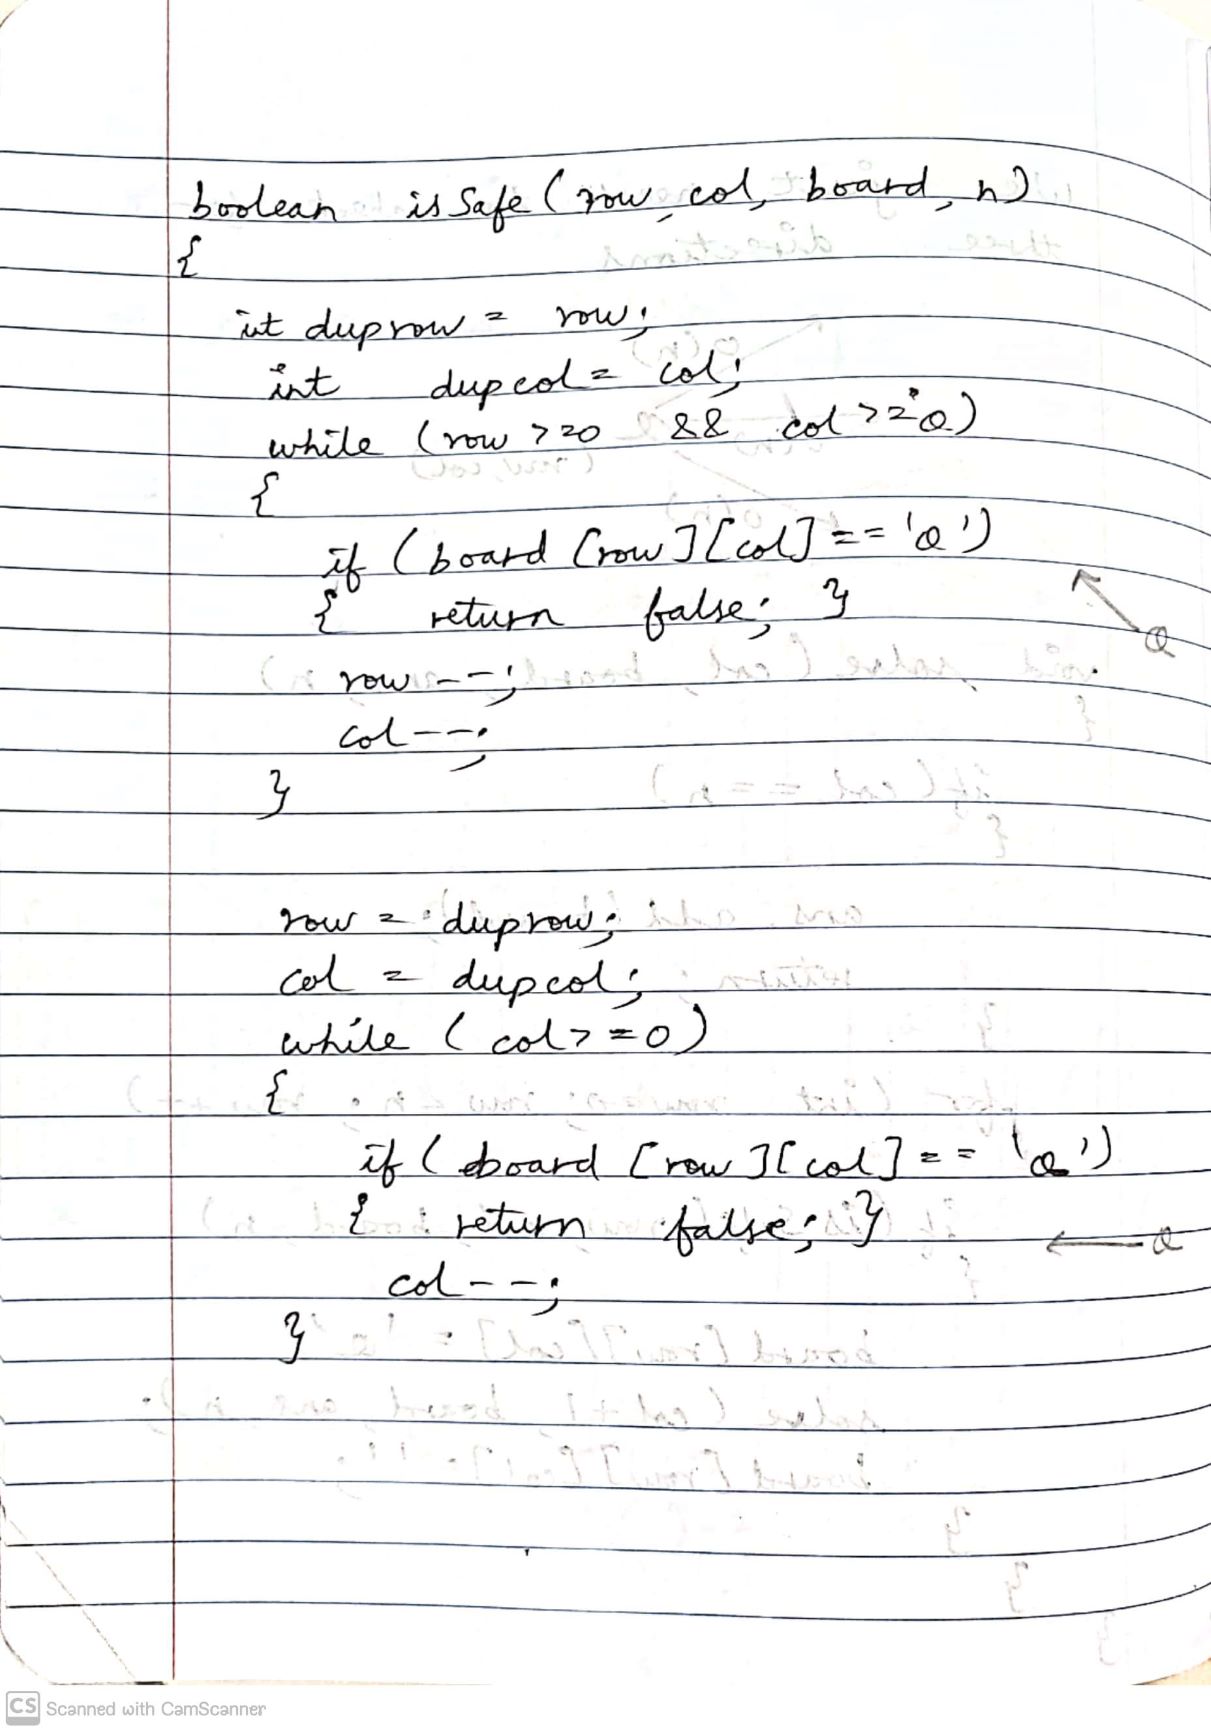 boolean isSafe (row, col, board, n)
{
int duprow = row;
int dupcol = col;
while (row >=0 && col >=0)
{
if (board [row][col] == 'Q')
{ return false; }
Q
row--;
col--;
}
row = duprow;
col = dupcol;
while (col>=0)
{
if (board [row][col] == 'Q')
{ return false; }
Q
col--;
}
CS Scanned with CamScanner